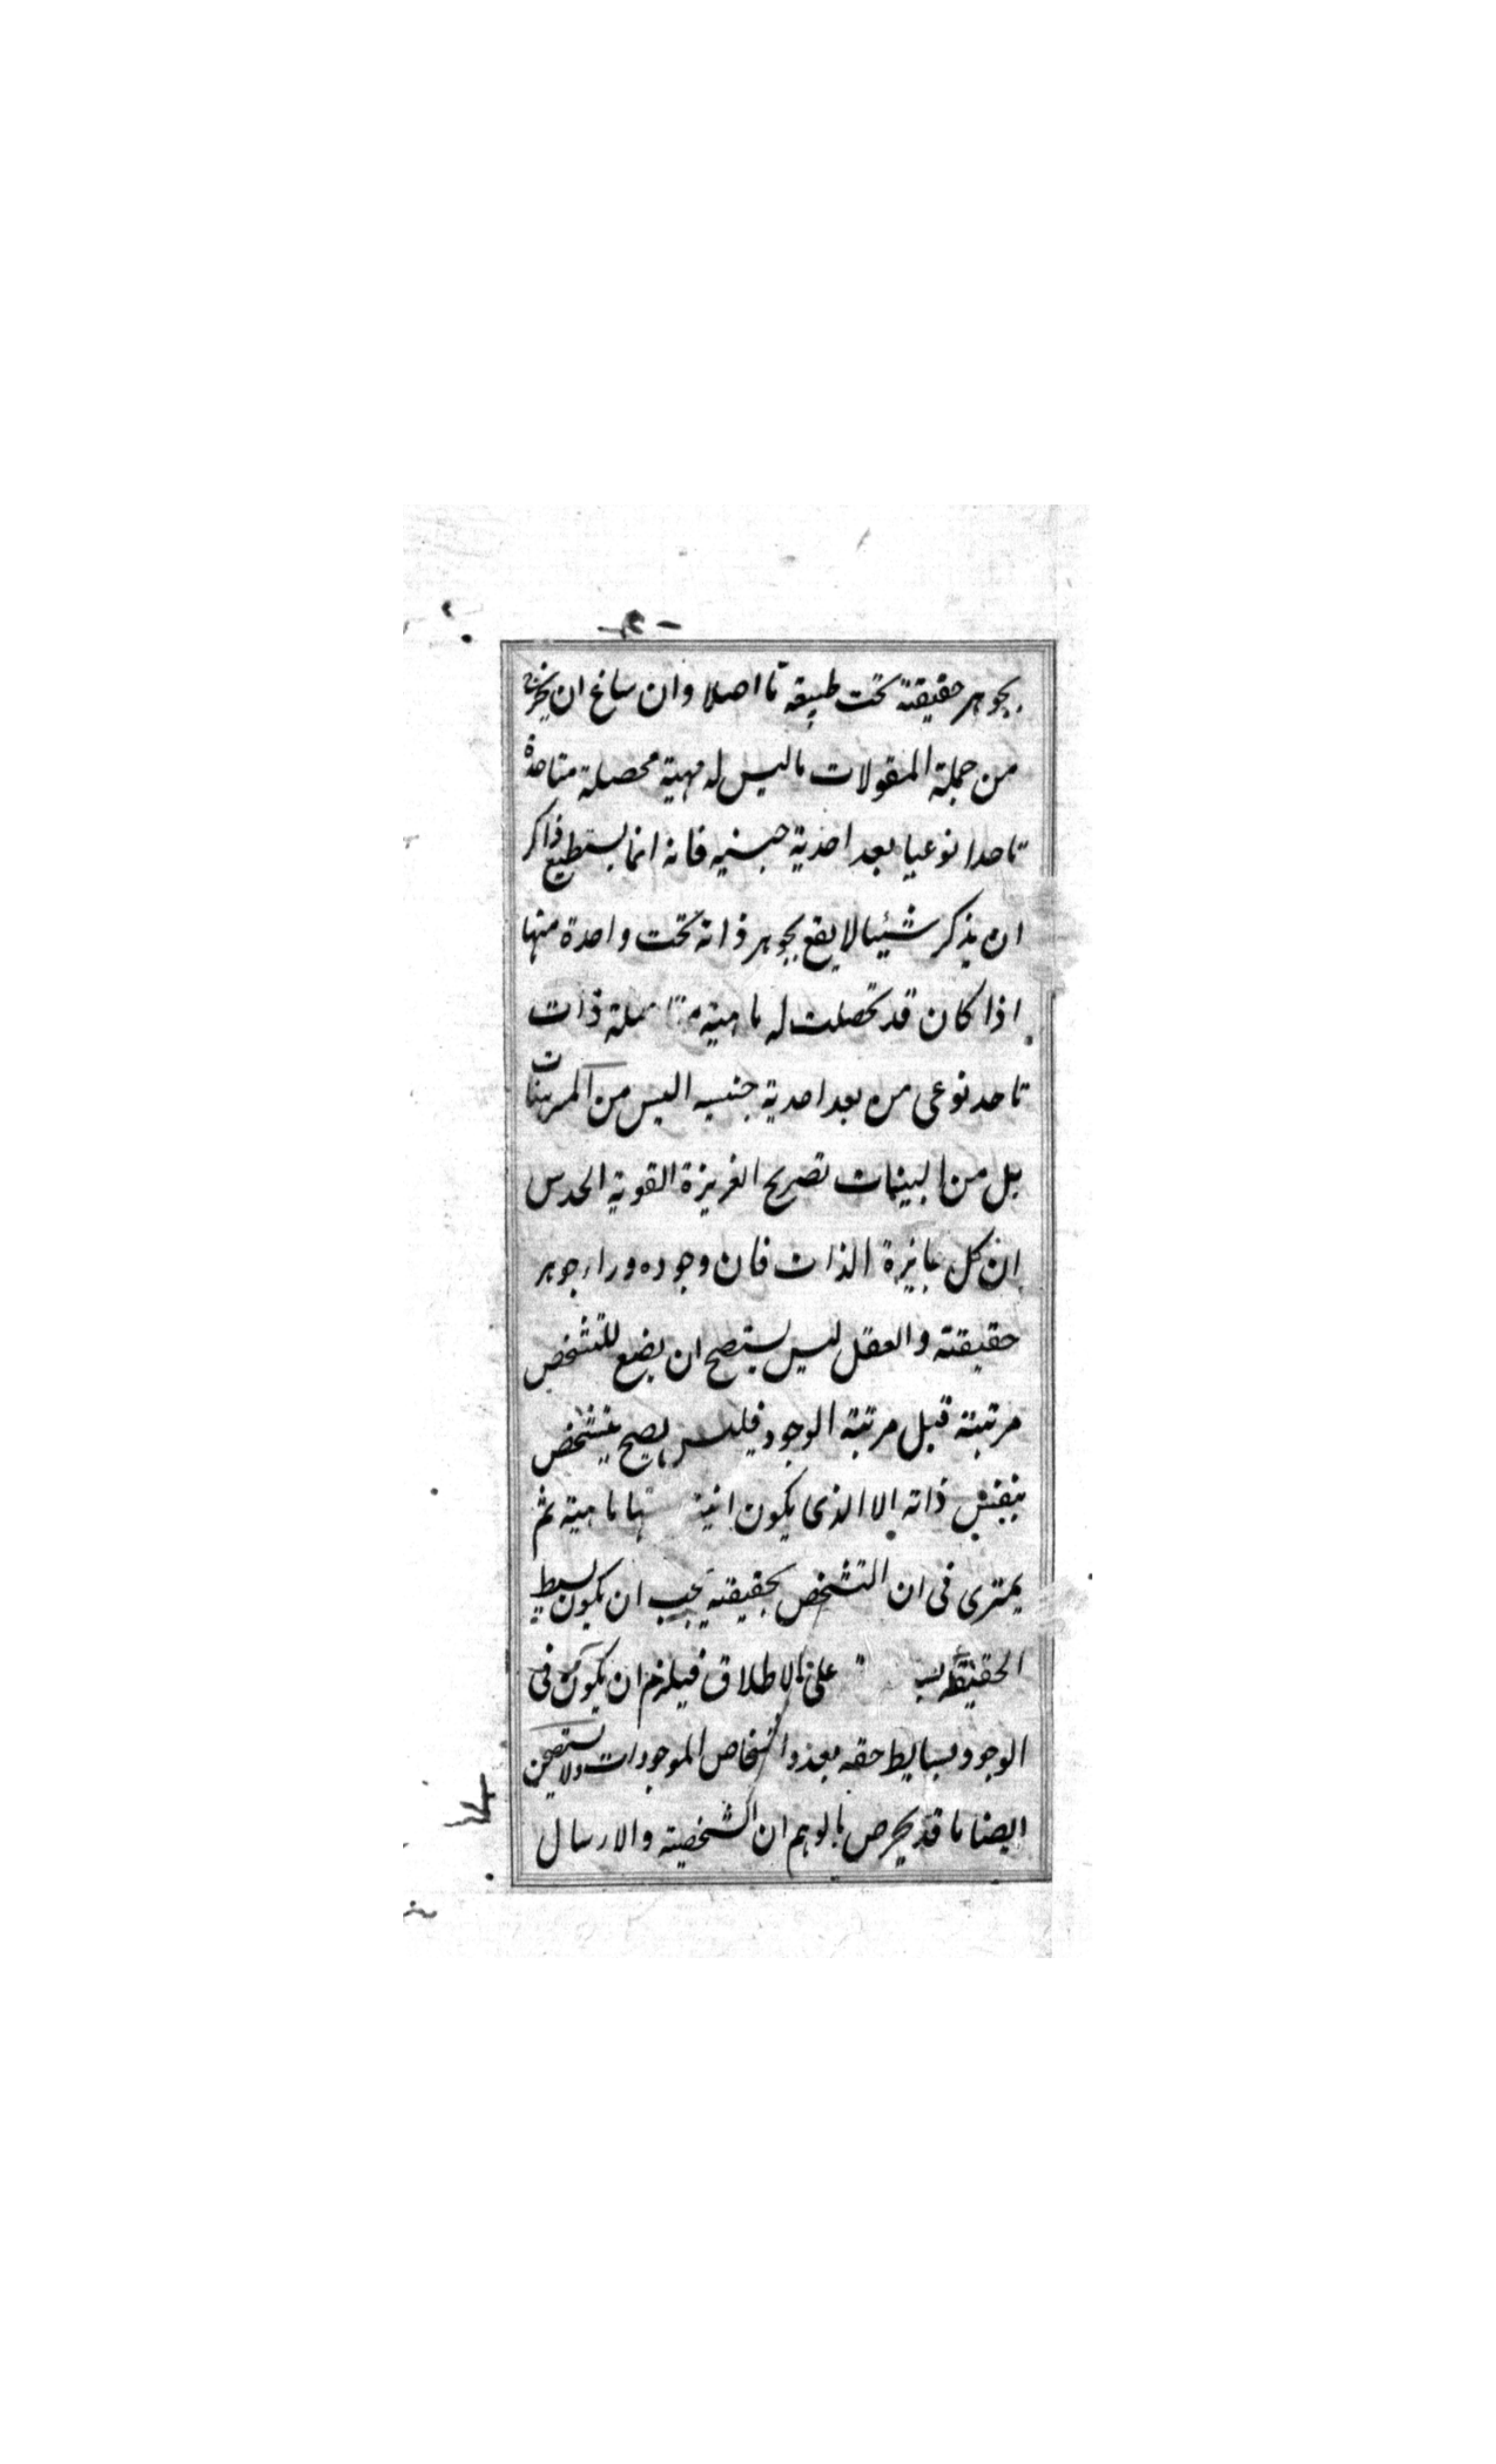 بجوهر حقيقته تحت طبيعة ما اصلا وان ساغ ان يخرج
من جملة المقولات ما ليس له مهية محصلة متاحدة
تاحدا نوعيا بعد احدية جنسيه فانه انما يستطيع ذاكر
ان يذكر شيئا لا يقع بجوهر ذاته تحت واحدة منها
اذا كان قد تحصلت له ماهية ذات
تاحد نوعى من بعد احدية جنسيه اليس من
بل من البينات تصريح الغريزة القوية الحدس
ان كل جايزة الذات فان وجوده وراء جوهر
حقيقته والعقل ليس يستصح ان يضع للتشخص
مرتبة قبل مرتبة الوجود فليس يصح
بنفس ذاته الا الذى يكون انيته ماهية ثم
يمترى فى ان التشخص بحقيقته يجب ان يكون بسيط
الحقيقة على الاطلاق فيلزم ان يكون فى
الوجود بسايط حقه بعدد اشخاص الموجودات ولا تستصحن
ايضا ما قد يخرص بالوهم ان الشخصية والارسال